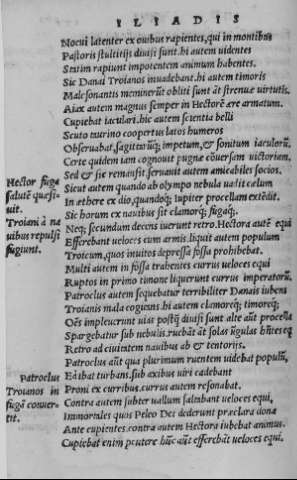 ILIADIS
Nocui latenter ex ouibus rapientes, qui in montibus
Pastoris stultitijs diuisi sunt. hi autem uidentes
Statim rapiunt impotentem animum habentes.
Sic Danai Troianos inuadebant. hi autem timoris
Malesonantis meminerūt obliti sunt āt strenuæ uirtutis.
Aiax autem magnus semper in Hectorē ære armatum.
Cupiebat iaculari. hic autem scientia belli
Scuto taurino coopertus latos humeros
Obseruabat, sagittarūq; impetum, & sonitum iaculorū.
Certe quidem iam cognouit pugnæ cōuersam uictoriam.
Sed & sic remansit. seruauit autem amicabiles socios.
Sicut autem quando ab olympo nebula uadit cælum
In æthere ex dio, quandoq; Iupiter procellam extēdit.
Sic horum ex nauibus sit clamorq; fugaq;.
Neq; secundum decens iuerunt retro. Hectora autē equi
Efferebant ueloces cum armis. liquit autem populum
Troicum, quos inuitos depressa fossa prohibebat.
Multi autem in fossa trahentes currus ueloces equi
Ruptos in primo timone liquerunt currus imperatorū.
Patroclus autem sequebatur terribiliter Danais iubens
Troianis mala cogitans. hi autem clamoreq; timoreq;
Oēs impleuerunt uias postq̄ diuisi sunt alte aūt procella
Spargebatur sub nebulis. ruebāt āt solas ūgulas hñtes eq
Retro ad ciuitatem nauibus ab & tentorijs.
Patroclus aūt qua plurimum ruentem uidebat populū,
Eā ibat turbans. sub axibus uiri cadebant
Proni ex curribus. currus autem resonabat.
Contra autem subter uallum saltabant ueloces equi,
Immortales quos Peleo Dei dederunt præclara dona
Ante cupientes. contra autem Hectora iubebat animus.
Cupiebat enim pcutere hūc aūt efferebāt ueloces equi.
Hector fuga
salutē quæsi-
uit.
Troiani a na
uibus repulsi
fugiunt.
Patroclus
Troianos in
fugā conuer-
tit.